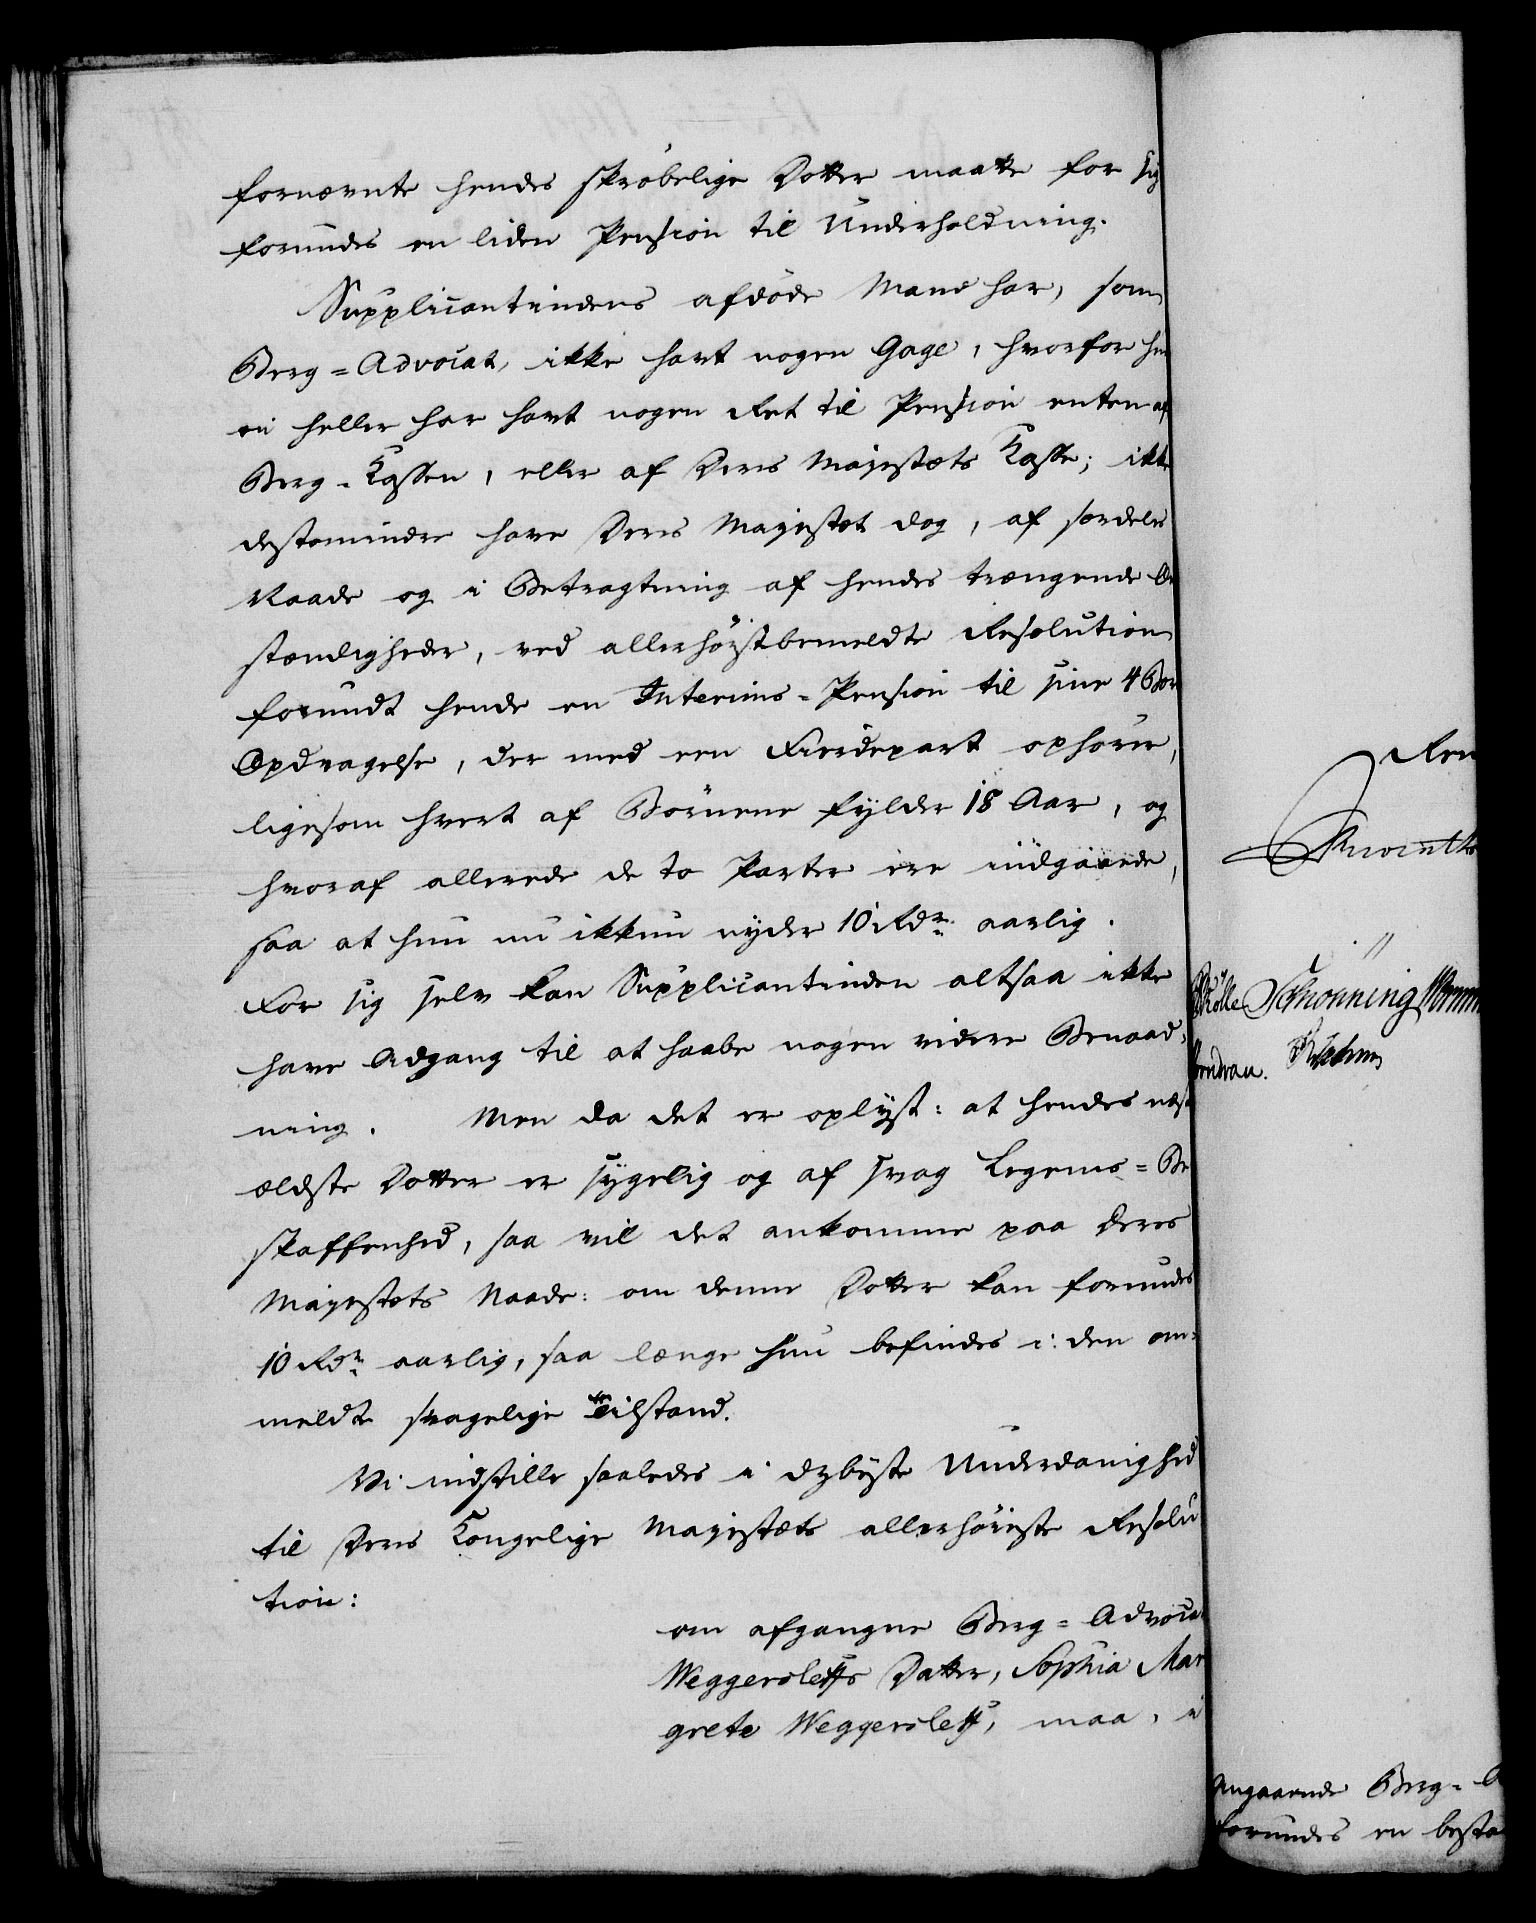 fornævnte hendes skrøbelige Dotter maatte for sig
forundes en liden Pension til Underholdning.
Supplicantindens afdøde Mand har, som
Berg=Advocat, ikke havt nogen Gage, hvorfor hun
ei heller har havt nogen Ret til Pension enten af
Berg-Kassen, eller af Deres Majestæts Kasse; ikke
destomindre have Deres Majestæt dog, af særdeles
Naade og i Betragtning af hendes trængende Om
stændigheder, ved allerhøistbemeldte Resolution
forundt hende en Interims=Pension til sine 4 Børns
Opdragelse, der med een Fierdepart ophører,
ligesom hvert af Børnene fylder 18 Aar, og
hvoraf allerede de to Parter ere indgaaede,
saa at hun nu ikkun nyder 10 Rdr. aarlig.
For sig selv kan Supplicantinden altsaa ikke
have Adgang til at haabe nogen videre Benaad=
ning. Men da det er oplyst: at hendes næst
ældste Dotter er sygelig og af svag Legems=Be
skaffenhed, saa vil det ankomme paa Deres
Majestæts Naade: om denne Dotter kan forundes
10 Rdr. aarlig, saa længe hun befindes i den om=
meldte svagelige Tilstand.
Vi indstille saaledes i dybeste Underdanighed
til Deres Kongelige Majestæts allerhøieste Resolu
tion:
om afgangne Berg=Advocat
Weggersløffs Datter, Sophia Mar
grete Weggersløff, maa, i
Ren
Schønning
angaaende Berg=
forundes en besta